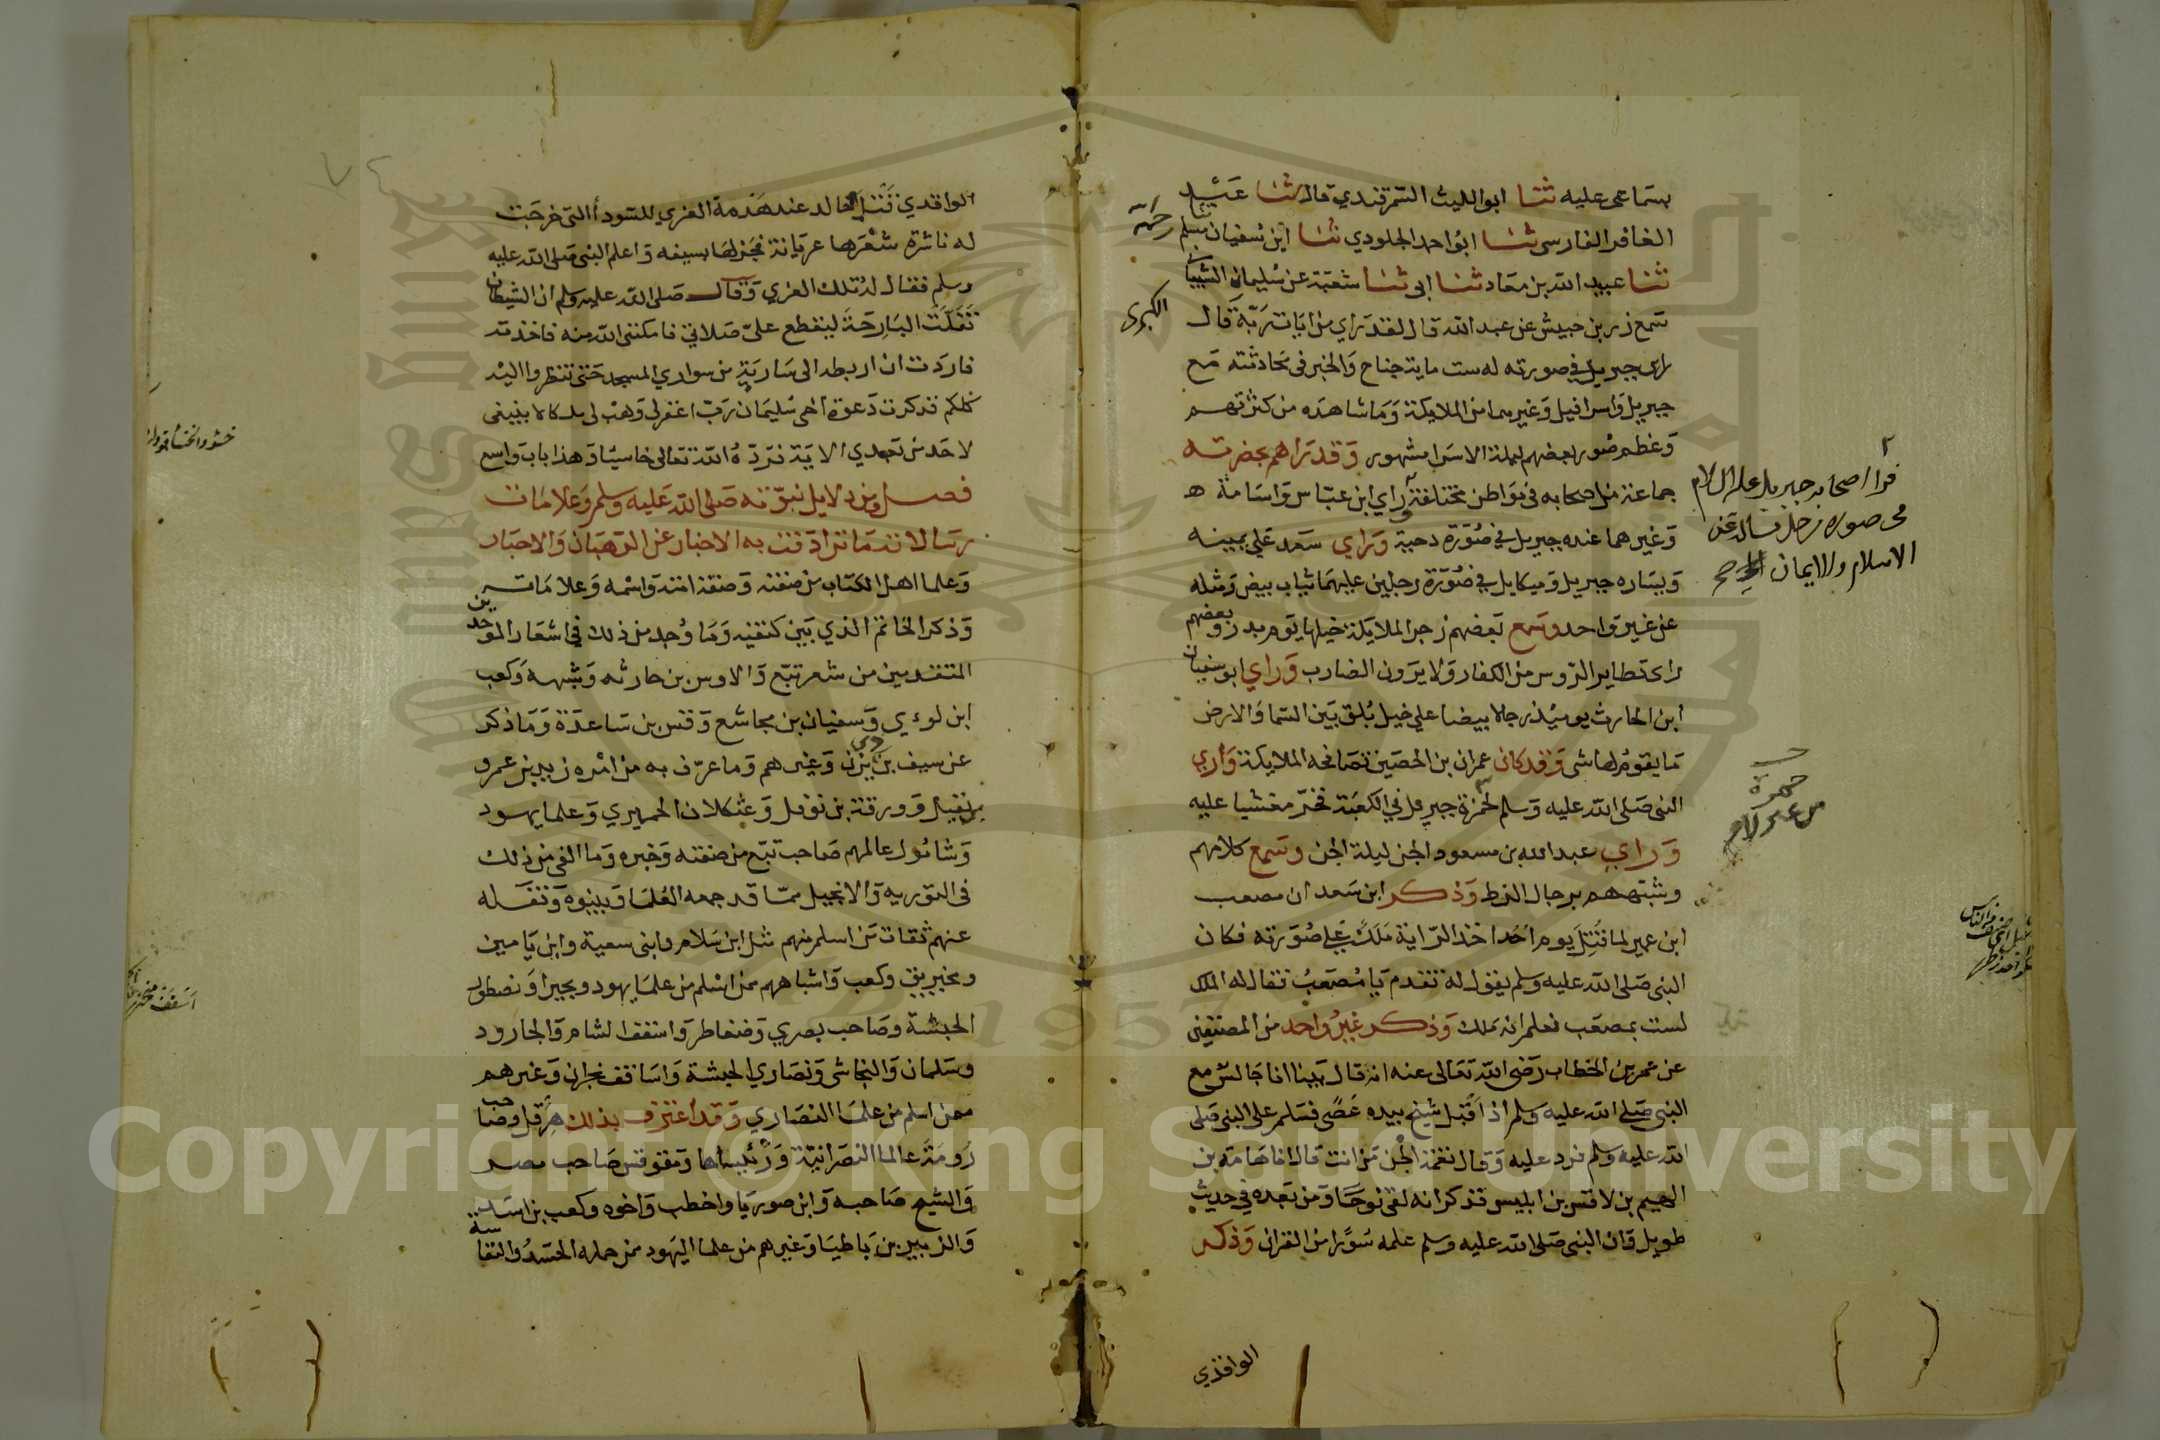 بسماعي عليه ثنا ابو الليث السمرقندي قال ثنا عبد
الغافر الفارسي ثنا ابو احمد الجلودي ثنا ابن سفيان ثنا مسلم
ثنا عبيد الله بن معاذ ثنا ابى ثنا شعبة عن سليمان الشيبانى
سمع زر بن حبيش عن عبد الله قال لقد راي من ايات ربه قال
راى جبريل في صورته له ست ماية جناح والخبر فى محادثته مع
جبريل واسرافيل وغيرهما من الملايكة وما شاهده من كثرتهم
وعظم صور بعضهم ليلة الاسرا مشهور وقد تراهم بحضرته
جماعة من اصحابه في مواطن مختلفة فراي ابن عباس واسامة
وغيرهما عنده جبريل في صورة دحية وراي سعد على يمينه
ويساره جبريل وميكايل في صورة رجلين عليهما ثياب بيض ومثله
عن غير واحد وسمع بعضهم زجر الملايكة خيلها يوم بدر وبعضهم
راى تطاير الروس من الكفار ولا يرون الضارب وراي ابو سفيان
ابن الحارث يوميذ رجالا بيضا على خيل بلق بين السما والارض
ما يقوم لها شى وقد كان عمران بن الحصين تصافحه الملايكة واري
النبى صلى الله عليه وسلم لحمزة جبريل في الكعبة فخر مغشيا عليه
وراي عبد الله بن مسعود الجن ليلة الجن وسمع كلامهم
وشبههم برجال الزط وذكر ابن سعد ان مصعب
ابن عمير لما قتل يوم احد اخذ الراية ملك على صورته فكان
النبى صلى الله عليه وسلم يقول له تقدم يا مصعب فقال له الملك
لست بمصعب فعلم انه ملك وذكر غير واحد من المصنفين
عن عمر بن الخطاب رضى الله تعالى عنه انه قال بينا انا جالس مع
النبى صلى الله عليه وسلم اذ اقبل شيخ بيده عصى فسلم على النبى صلى
الله عليه وسلم فرد عليه وقال نغمة الجن من انت قال انا هامة بن
الهيم بن لاقس بن ابليس فذكر انه لقى نوحا ومن بعده في حديث
طويل وان النبى صلى الله عليه وسلم علمه سورا من القران وذكر
الواقدي
رحمه
الكبرى
فرا اصحابه جبريل عليه السلام
فى صورة رجل يساله عن
الاسلام والايمان صح
حمزة
الواقدي قتل خالد عند هدمه العزي للسودأ التى خرجت
له ناشرة شعرها عريانة فجزلها بسيفه واعلم النبى صلى الله عليه
وسلم فقال له تلك العزي وقال صلى الله عليه وسلم ان الشيطان
تفلت البارحة ليقطع علىّ صلاتي فامكننى الله منه فاخذته
فاردت ان اربطه الى سارية من سواري المسجد حتى تنظروا اليه
كلكم فذكرت دعوة اخى سليمان رب اغفر لى وهب لى ملكا لا ينبغى
لاحد من بعدي الاية فرده الله تعالى خاسيا وهذا باب واسع
فصل ومن دلايل نبوته صلى الله عليه وسلم وعلامات
رسالاته ما ترادفت به الاخبار عن الرهبان والاحبار
وعلما اهل الكتاب من صفته وصفة امته واسمه وعلاماته
وذكر الخاتم الذي بين كتفيه وما وُجد من ذلك في اشعار الموحدين
المتقدمين من شعر تبّع والاوس بن حارثه وشبهه وكعب
ابن لوءي وسفيان بن مجاشع وقس بن ساعدة وما ذكر
عن سيف بن ذي يزن وغيرهم وما عرّف به من امره زيد بن عمرو
بن نفيل وورقة بن نوفل وعثكلان الحميري وعلما يهود
وشامُول عالمهم صاحب تبّع من صفته وخبره وما الفى من ذلك
فى التوريه والانجيل ممّا قد جمعه العلما وبينوه ونقله
عنهم ثقات من اسلم منهم مثل ابن سلام وابنى سعية وابن يامين
ومخيريق وكعب واشباههم ممن اسلم من علما يهود وبحيرا ونصطور
الحبشة وصاحب بصري وضغاطر واسقف الشام والجارود
وسلمان والنجاشى ونصاري الحبشة واساقف نجران وغيرهم
ممن اسلم من علما النصاري وقد اعترف بذلك هرقل وصاحب
رومة عالما النصرانية ورئيساها ومقوقس صاحب مصر
والشيخ صاحبه وابن صوريا واخطب واخوه وكعب بن اسد
والزبير بن باطيا وغيرهم من علما اليهود ممن حمله الحسد والنفاسة
Copyright © King Saud University
1957